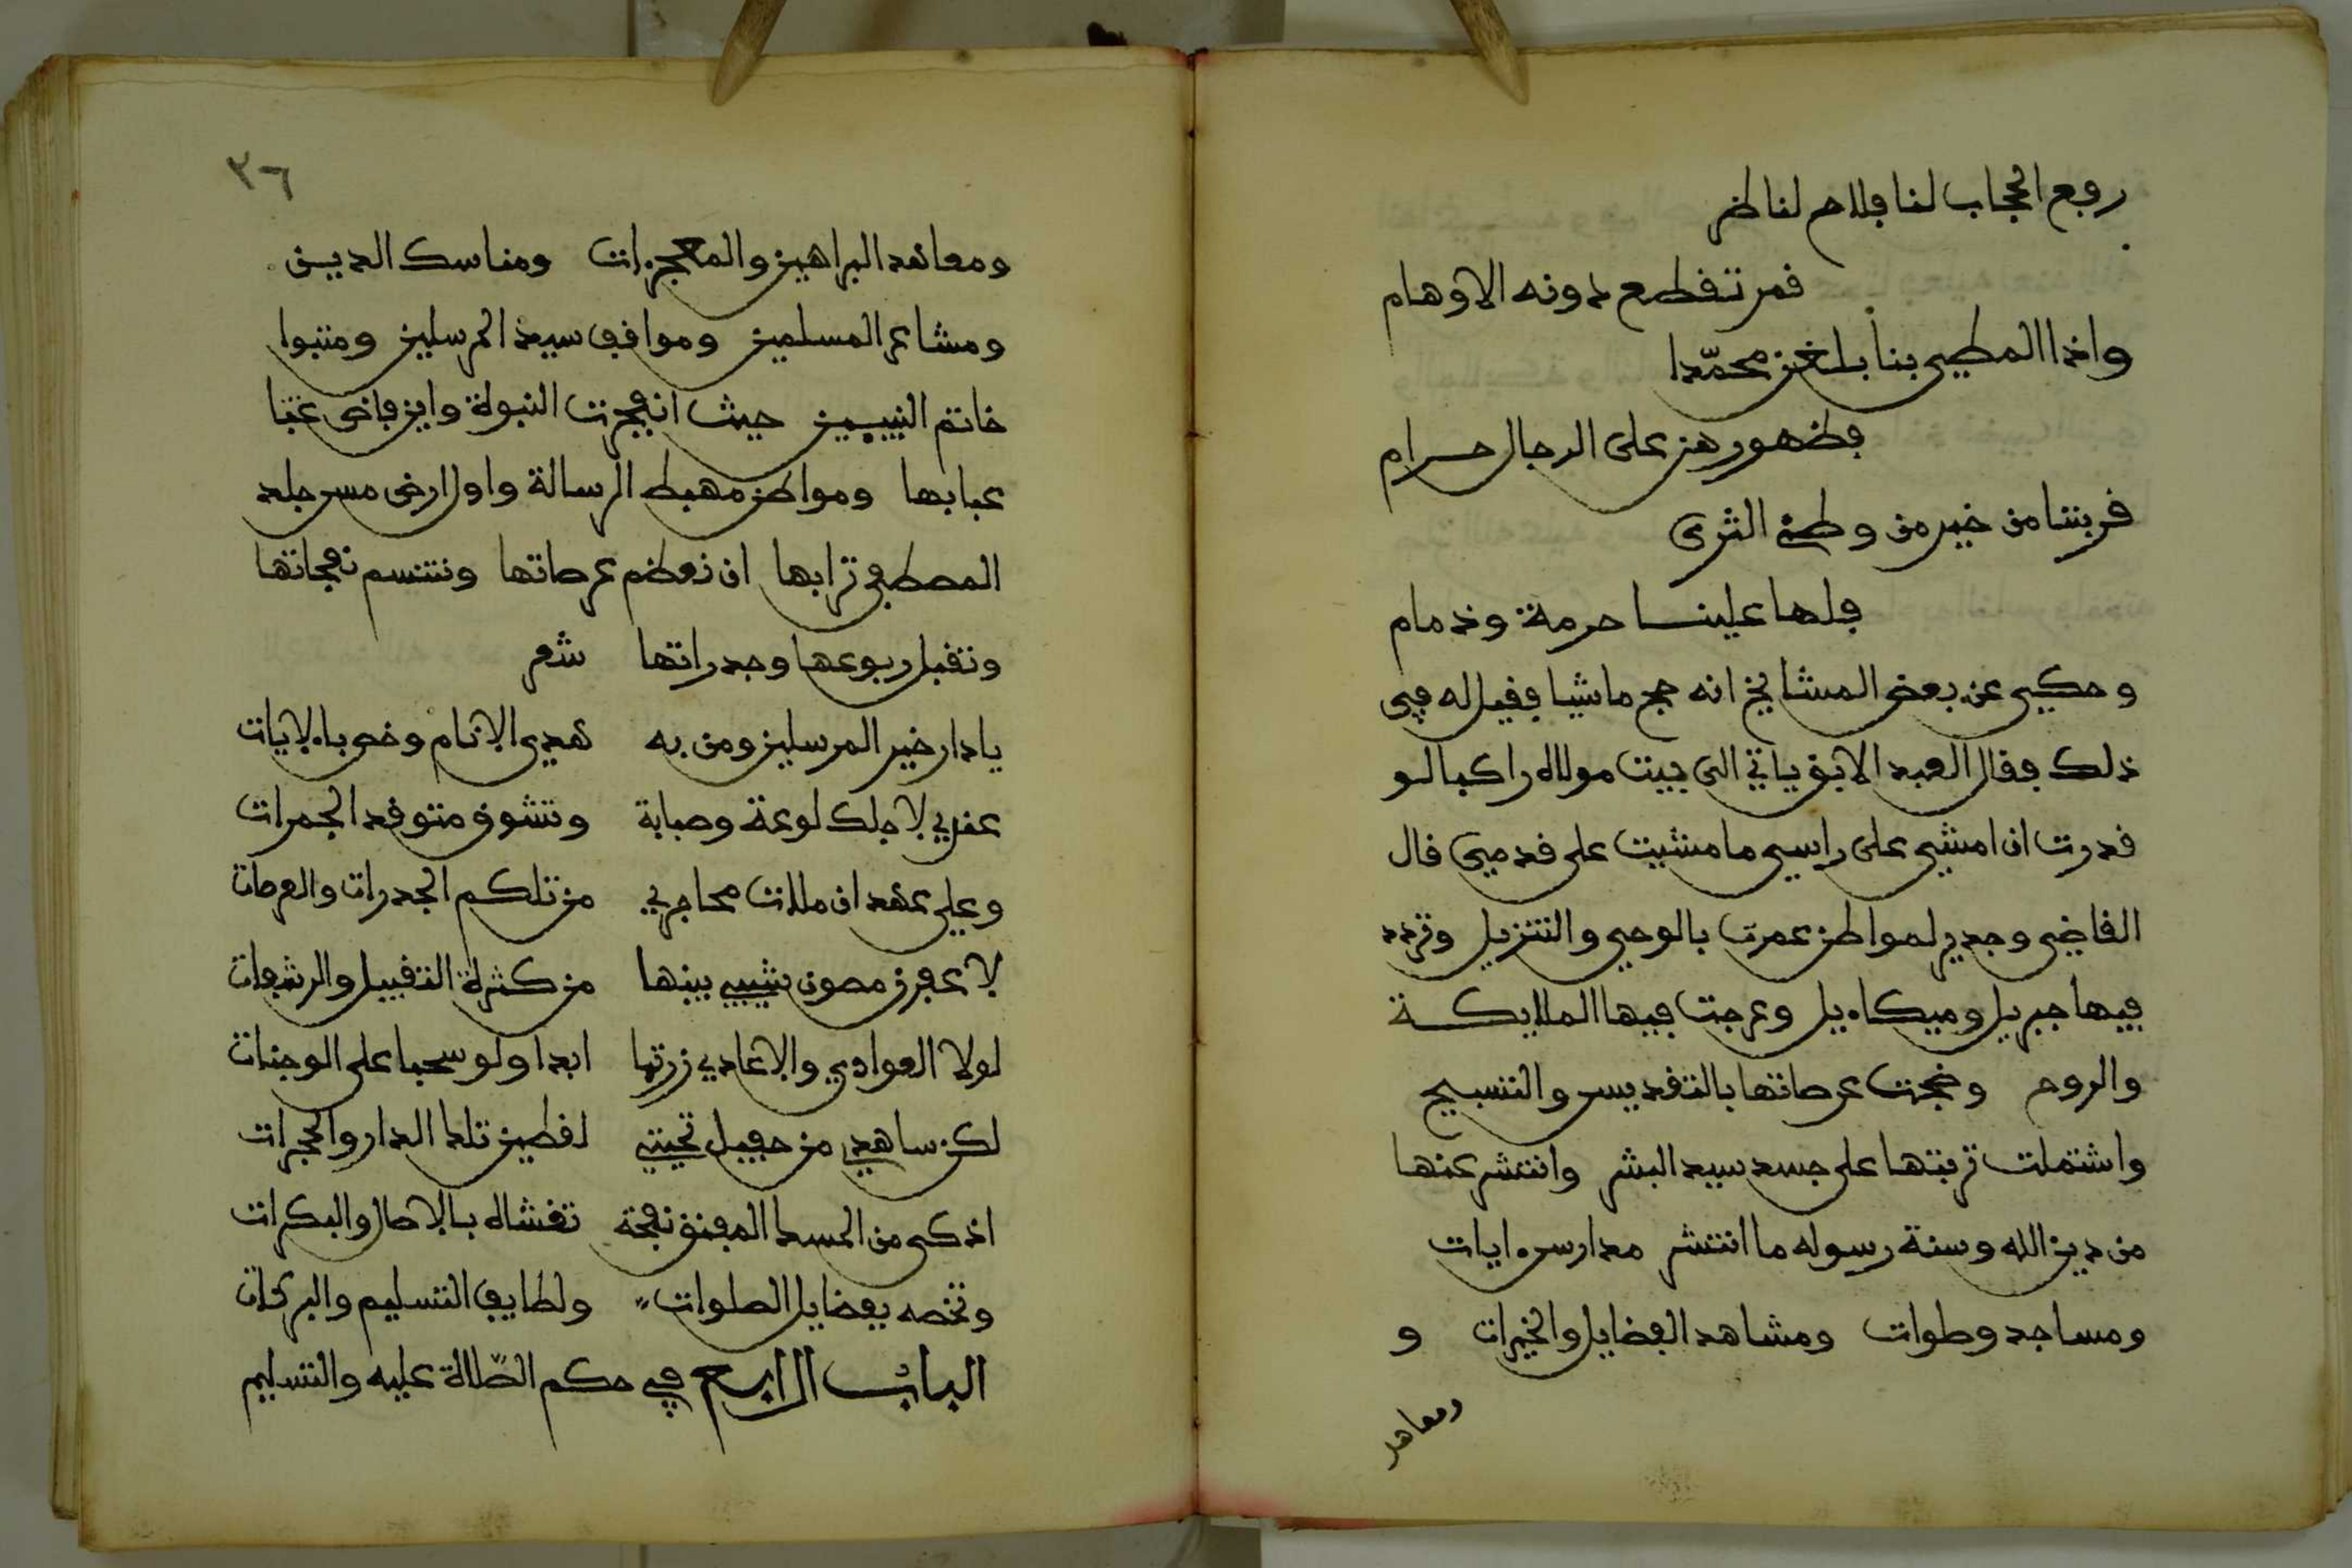 رفع الحجاب لنا فلاح لناظر
قمر تقطع دونه الاوهام
واذا المطي بنا بلغن محمّدا
فظهورهن على الرجال حرام
قربتنا من خير من وطئ الثرى
فلها علينا حرمة وذمام
وحكي عن بعض المشايخ انه حج ماشيا فقيل له في
ذلك فقال العبد الابق ياتي الى بيت مولاه راكبا لو
قدرت ان امشي على راسي ما مشيت على قدمي قال
القاضي وجدير لمواطن عمرت بالوحي والتنزيل وتردد
فيها جبريل وميكاءيل وعرجت فيها الملايكة
والروح وضجت عرصاتها بالتقديس والتسبيح
واشتملت تربتها على جسد سيد البشر وانتشر عنها
من دين الله وسنة رسوله ما انتشر مدارس ءايات
ومساجد وصلوات ومشاهد الفضايل والخيرات و
ومعاهد
٣٦
ومعاهد البراهين والمعجزات ومناسك الدين
ومشاعر المسلمين ومواقف سيد المرسلين ومتبوا
خاتم النبيين حيث انفجرت النبوة واين فاض
عبابها ومواطن مهبط الرسالة واول ارض مس جلد
المصطفى ترابها ان تعظم عرصاتها وتتنسم نفحاتها
وتقبل ربوعها وجدراتها شعر
يا دار خير المرسلين ومن به هدي الانام وخص بالايات
عندي لاجلك لوعة وصبابة وتشوق متوقد الجمرات
وعلي عهد ان ملات محاجري من تلكم الجدرات والعرصات
لاعفرن مصون شيبي بينها من كثرة التقبيل والرشفات
لولا العوادي والاعادي زرتها ابدا ولو سحبا على الوجنات
لكن ساهدي من حفيل تحيتي لقطين تلك الدار والحجرات
اذكى من المسك المفتق نفحة تغشاه بالاصال والبكرات
وتخصه بفضايل الصلوات ولطايف التسليم والبركات
الباب الرابع في حكم الصّلاة عليه والتسليم